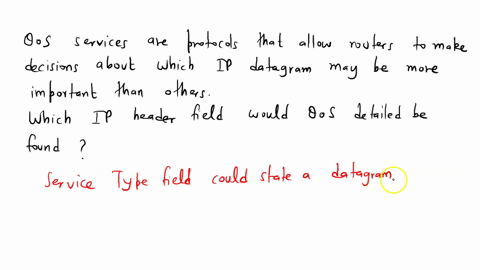 QoS services are protocols that allow routers to make
decisions about which IP datagram may be more
important than others.
Which IP header field would QoS detailed be
found ?
Service Type field could state a datagram.